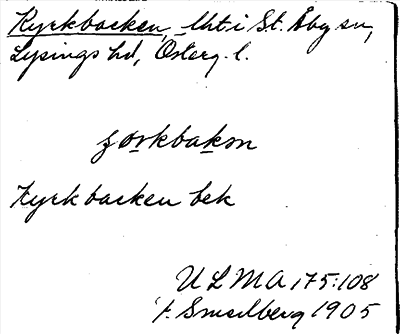 Kyrkbacken, lht i St. Åby sn,
Lysings hd, Österg. l.
Kyrkbacken bek
ULMA 175:108
Smedberg 1905